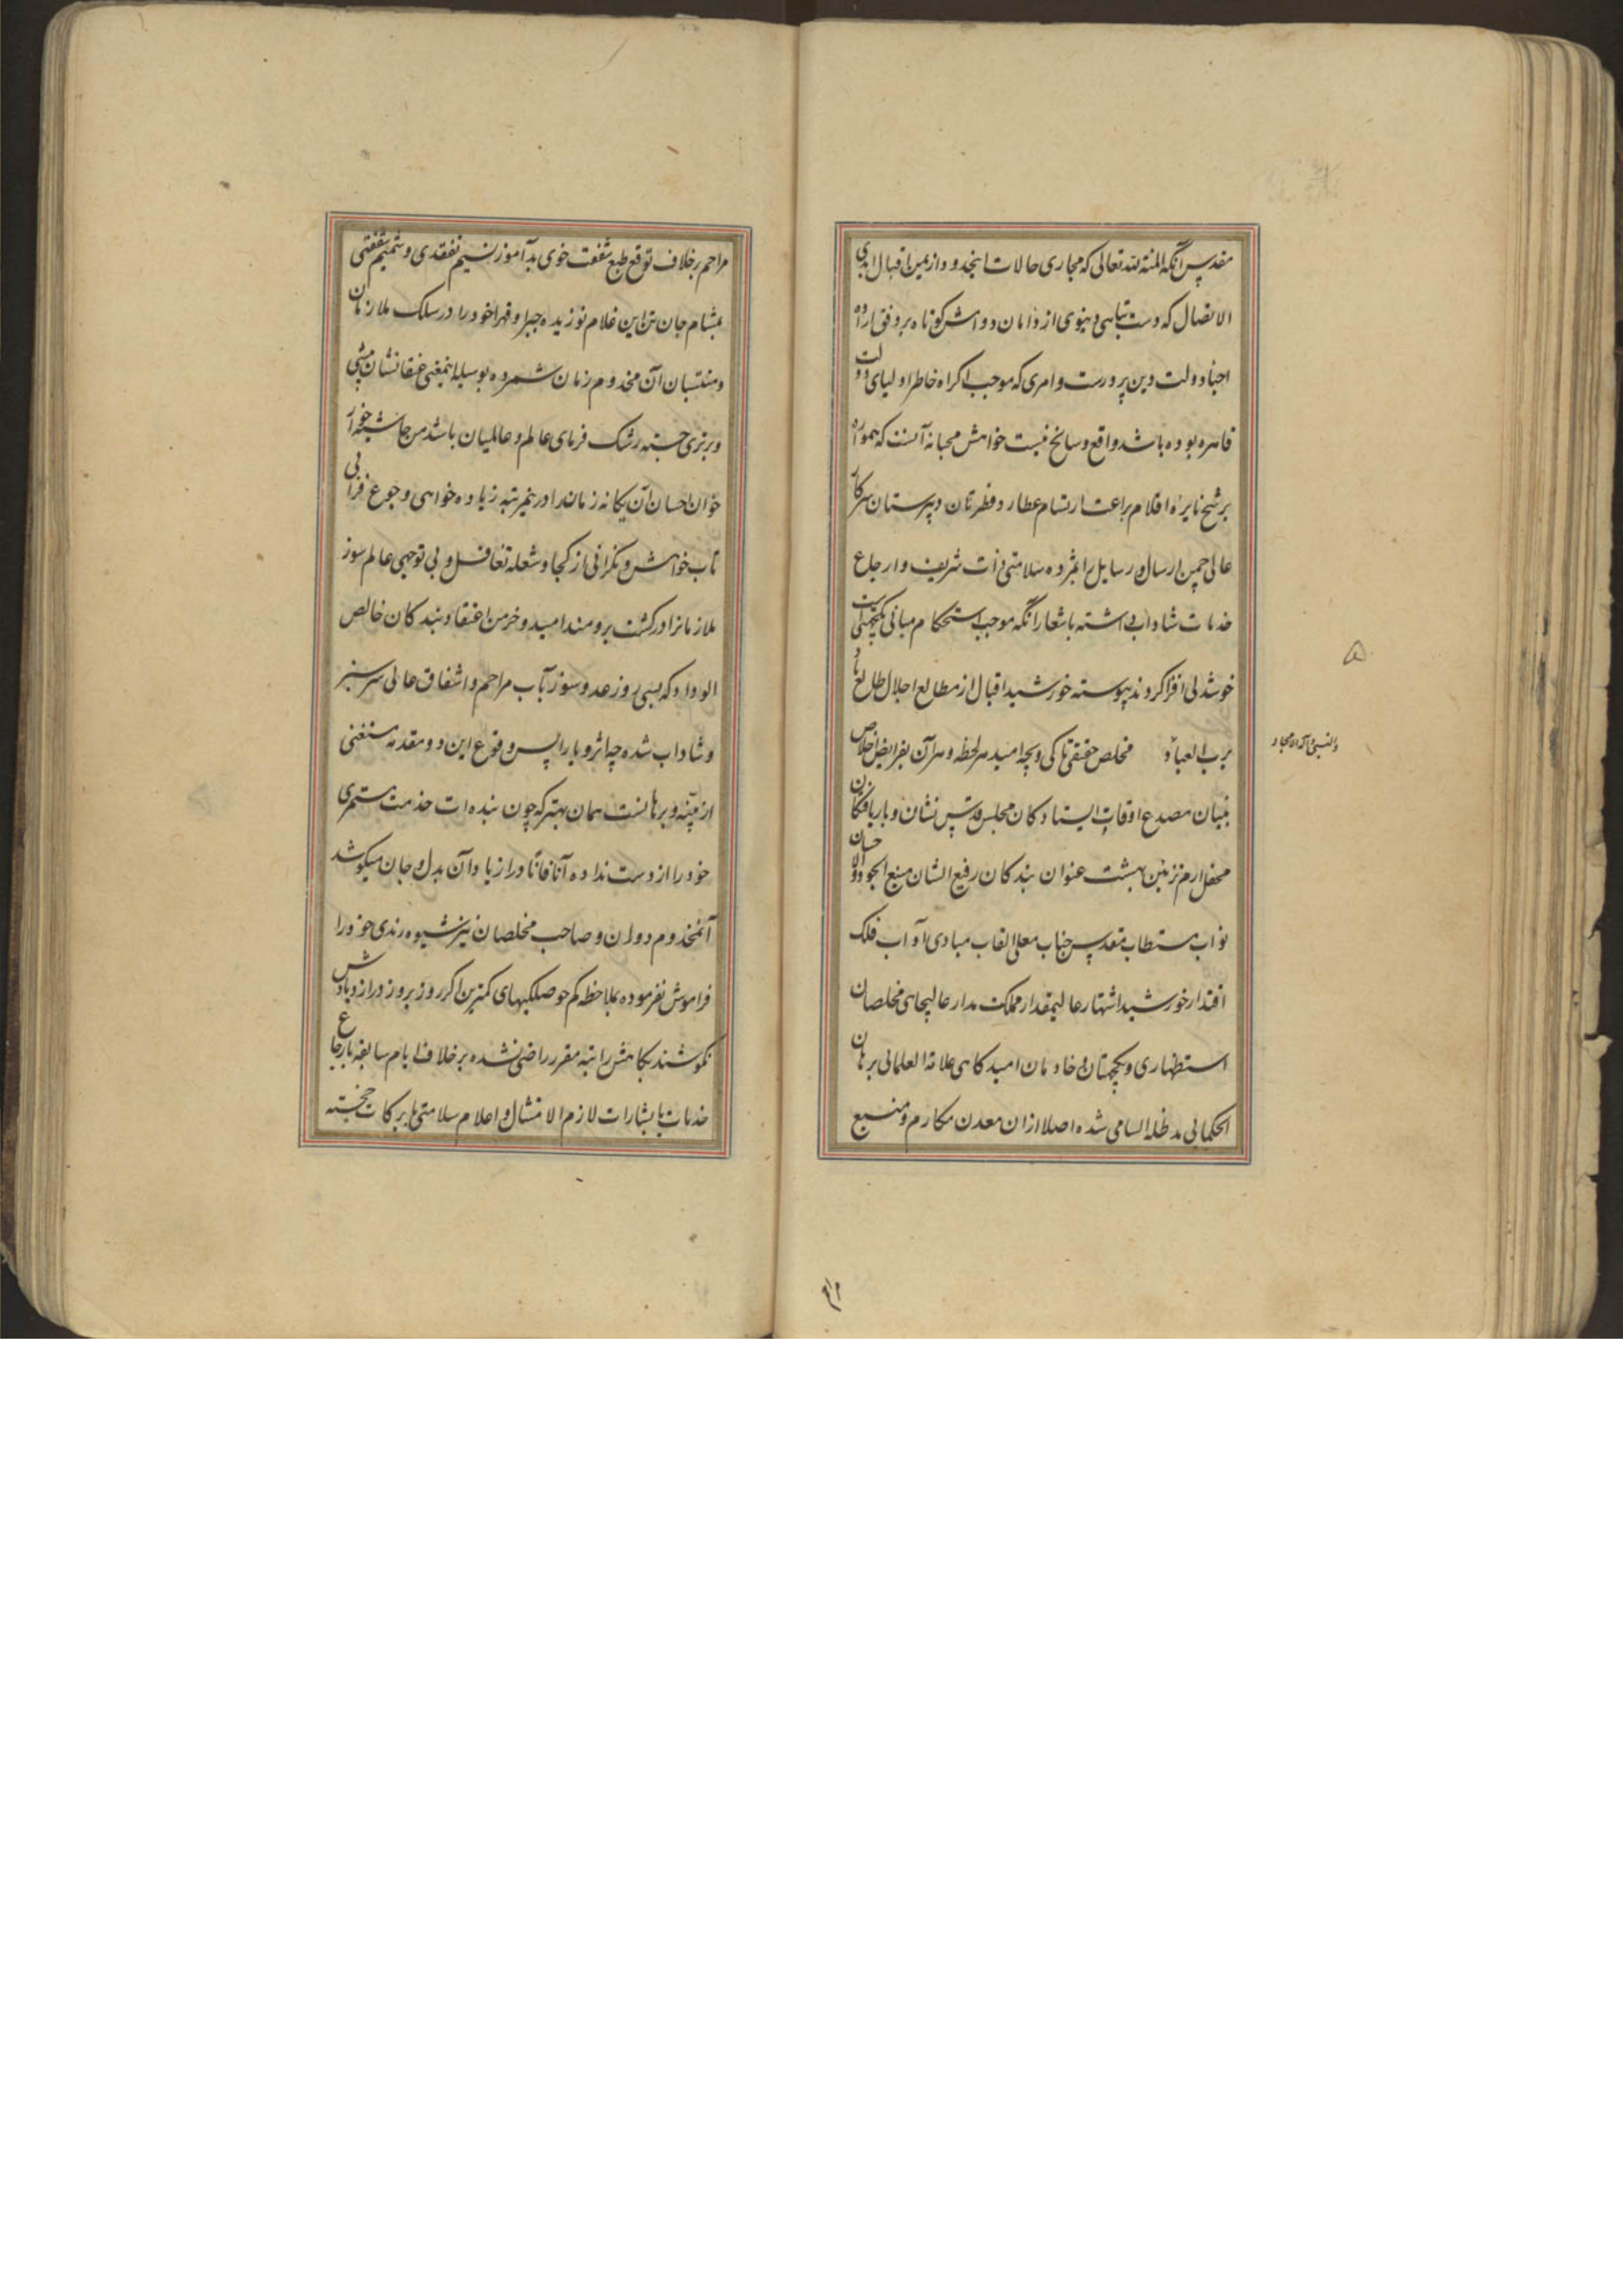 مقدس آنکه المنة لله تعالی که مجاری حالات اینحدود از یمن اقبال ابدی
الاتصال که دست تباهی دنیوی از دامان دوامش کوتاه بر وفق اراده
احباء دولت دین پرورست و امری که موجب اکراه خاطر اولیای دولت
قاهره بوده باشد واقع و سانح نیست خواهش محبانه آنست که همواره
برشح نایره اقلام براعت ارتسام عطارد فطرتان دبیرستان سرکار
عالی چمن ارسال رسایل را بمژده سلامتی ذات شریف و ارجاع
خدمات شاداب داشته باشعار آنکه موجب استحکام مبانی یکجهتیست
خوشدلی افزا کردند پیوسته خورشید اقبال از مطالع اجلال طالع باد
برب العباد مخلص حقیقی تا کی و بچه امید هر لحظه و هر آن بفرایض اخلاص
بنیان مصدع اوقات ایستادکان مجلس قدس نشان و باریافتکان
محفل ارم تزیین بهشت عنوان بندکان رفیع الشان منبع الجود والاحسان
نواب مستطاب مقدس جناب معلی القاب مبادی آداب فلک
اقتدار خورشید اشتهار عالیمقدار مملکت مدار عالیجاهی مخلصان
استظهاری و یکجهتان و خادمان امیدکاهی علامة العلمائی برهان
الحکمائی مد ظله السامی شده اصلا از ان معدن مکارم و منبع
والنبی و آله الامجاد
مراحم بر خلاف توقع طبع شفقت خوی بدآموز نسیم تفقدی و شمیم شفقتی
بمشام جان تن این غلام نوزیده جبرا و قهرا خود را در سلک ملازمان
و منتسبان آن مخدوم زمان شمرده بوسیله اینمعنی عنقا نشان پیشی
و برتری جسته رشک فرمای عالم و عالمیان باشد من چاشنی خوار
خوان احسان آن یکانه زمانه را در ینمرتبه زیاده خواهی و جوع فراوانی
تاب خواهش و نکرانی از کجا و شعله تغافل و بی توجهی عالم سوز
ملازمانرا در کشت برومند امید و خرمن اعتقاد بندکان خالص
الوداد که بسی روز عد و سوز بآب مراحم و اشفاق عالی سرسبز
و شاداب شده چه اثر و یارا پس وقوع این دو مقدمه مستغنی
از بینه و برهانست همان بهتر که چون بنده ات خدمت مستمری
خود را از دست نداده آنا فانا در ازیاد آن بدل و جان میکوشد
آنمخدوم دوران و صاحب مخلصان نیز شیوه رندی خود را
فراموش نفرموده بملاحظه کم حوصلکیهای کمترین اکر روز بروز در ازدیادش
نکوشند بکاهش راتبه مقرر راضی نشده بر خلاف ایام سابقه بارجاع
خدمات با بشارات لازم الامتثال و اعلام سلامتی با برکات خجسته